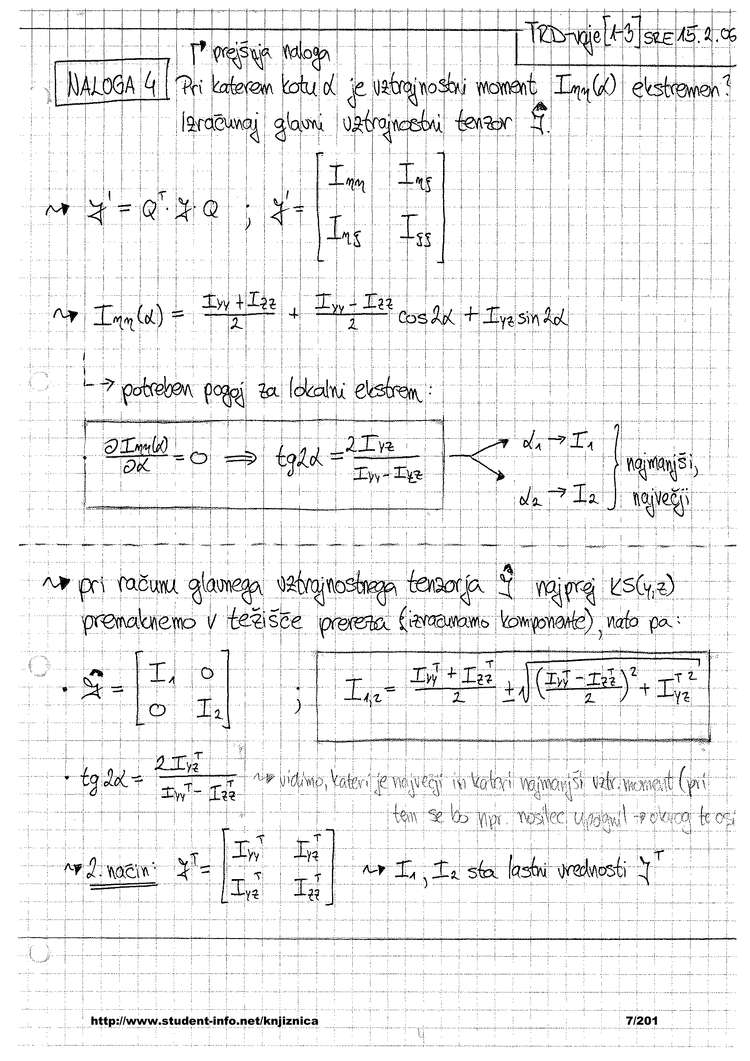 TRD-vaje [1-3] SRE 15.2.06
↱ prejšnja naloga
NALOGA 4 Pri katerem kotu α je vztrajnostni moment Iηη(α) ekstremen?
Izračunaj glavni vztrajnostni tenzor Ĵ.
⇝ J' = Qᵀ · J · Q ; J' = [Iηη Iηζ
Iηζ Iζζ]
⇝ Iηη(α) = (Iyy + Izz)/2 + (Iyy - Izz)/2 cos2α + Iyz sin2α
↳ potreben pogoj za lokalni ekstrem:
· ∂Iηη(α)/∂α = 0 ⇒ tg2α = 2Iyz/(Iyy - Iyz) → α₁ → I₁
α₂ → I₂ } najmanjši,
največji
⇝ pri računu glavnega vztrajnostnega tenzorja Ĵ najprej KS(y,z)
premaknemo v težišče prereza (izračunamo komponente), nato pa:
· Ĵ = [I₁ 0
0 I₂] ; I₁,₂ = (Iyyᵀ + Izzᵀ)/2 ± √(((Iyyᵀ - Izzᵀ)/2)² + Iyzᵀ²)
· tg2α = 2Iyzᵀ/(Iyyᵀ - Izzᵀ) ⇝ vidimo, kateri je največji in kateri najmanjši vztr. moment (pri
tem se bo npr. nosilec upognil → okrog te osi
⇝ 2. način: Jᵀ = [Iyyᵀ Iyzᵀ
Iyzᵀ Izzᵀ] ⇝ I₁, I₂ sta lastni vrednosti Jᵀ
http://www.student-info.net/knjiznica 7/201
4